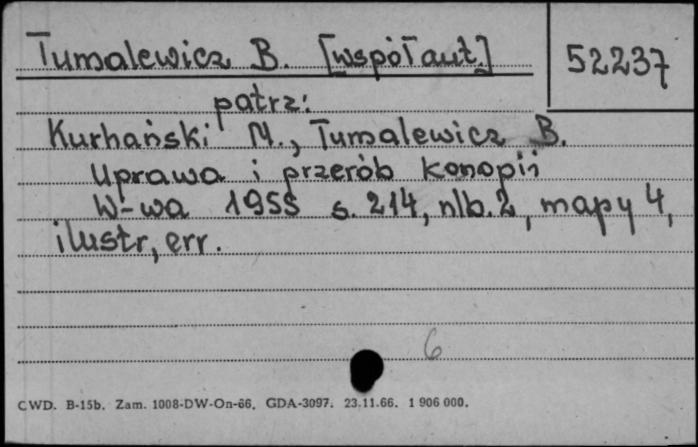 Tumalewicz B. [współaut.]
52237
patrz:
Kurhański M., Tumalewicz B.
Uprawa i przerób konopii
W-wa 1955 s. 214, nlb. 2, mapy 4,
ilustr, err.
6
CWD. B-15b. Zam. 1008-DW-On-66. GDA-3097. 23.11.66. 1 906 000.